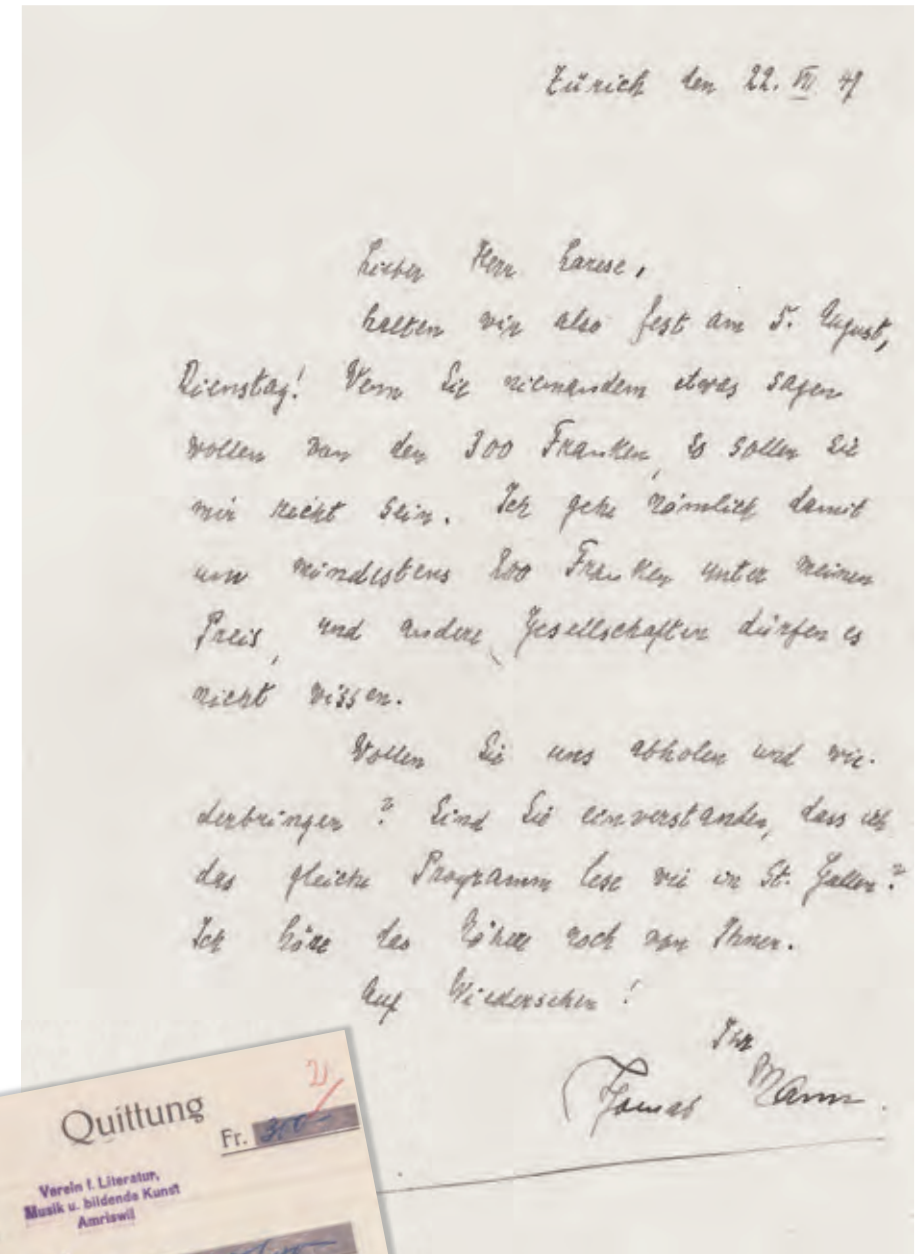 Zürich den 22. VII 47
Lieber Herr Larese,
halten wir also fest am 5. August,
Dienstag! Wenn Sie niemandem etwas sagen
wollen von den 300 Franken, so sollen Sie
mir recht sein. Ich gehe nämlich damit
um mindestens 200 Franken unter meinen
Preis, und andere Gesellschaften dürfen es
nicht wissen.
Wollen Sie uns abholen und wie-
derbringen? Sind Sie einverstanden, dass ich
das gleiche Programm lese wie in St. Gallen?
Ich höre das Nähere noch von Ihnen.
Auf Wiedersehen!
Ihr
Thomas Mann.
21
Quittung
Fr. 300.-
Verein f. Literatur,
Musik u. bildende Kunst
Amriswil